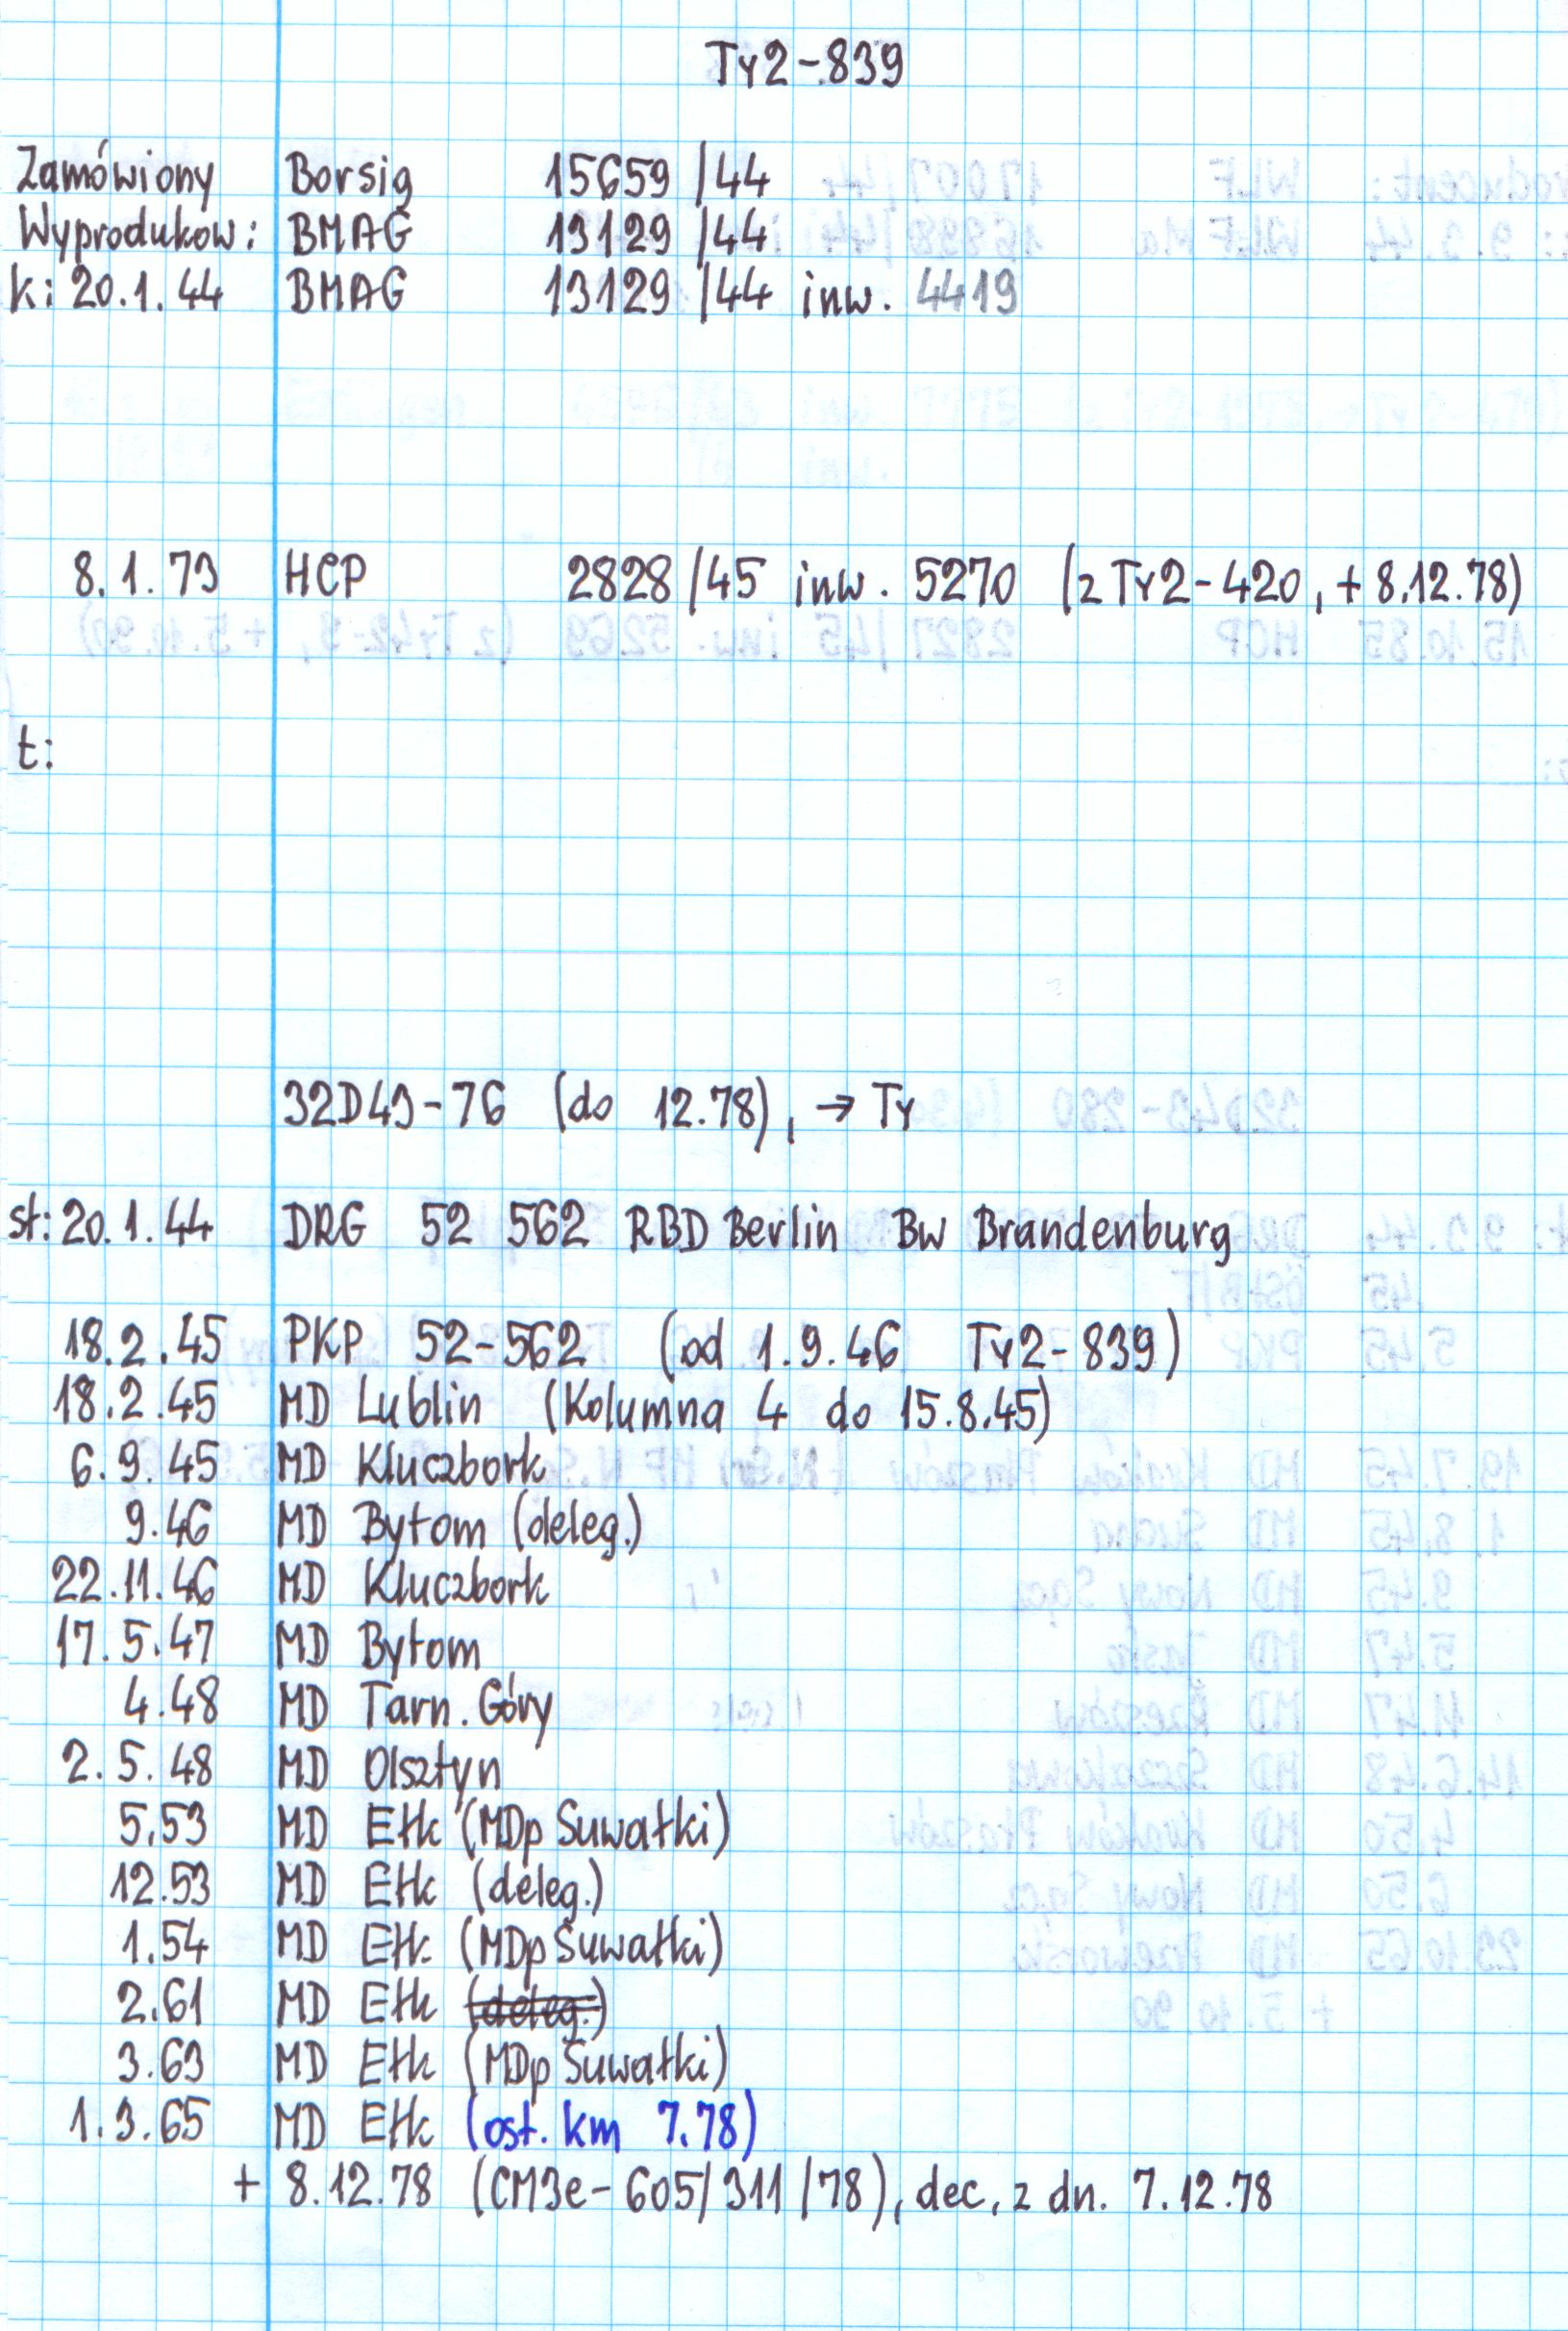 Ty2-839
Zamówiony Borsig 15659/44
Wyprodukow: BMAG 13129/44
k: 20.1.44 BMAG 13129/44 inw. 4419
8.1.73 HCP 2828/45 inw. 5270 (z Ty2-420, + 8.12.78)
t:
32D43-76 (do 12.78), → Ty
st: 20.1.44 DRG 52 562 RBD Berlin Bw Brandenburg
18.2.45 PKP 52-562 (od 1.9.46 Ty2-839)
18.2.45 MD Lublin (Kolumna 4 do 15.8.45)
6.9.45 MD Kluczbork
9.46 MD Bytom (deleg.)
22.11.46 MD Kluczbork
17.5.47 MD Bytom
4.48 MD Tarn. Góry
2.5.48 MD Olsztyn
5.53 MD Ełk (MDp Suwałki)
12.53 MD Ełk (deleg.)
1.54 MD Ełk (MDp Suwałki)
2.61 MD Ełk (deleg.)
3.63 MD Ełk (MDp Suwałki)
1.3.65 MD Ełk (ost. km 7.78)
+ 8.12.78 (CM3e-605/311/78), dec. z dn. 7.12.78